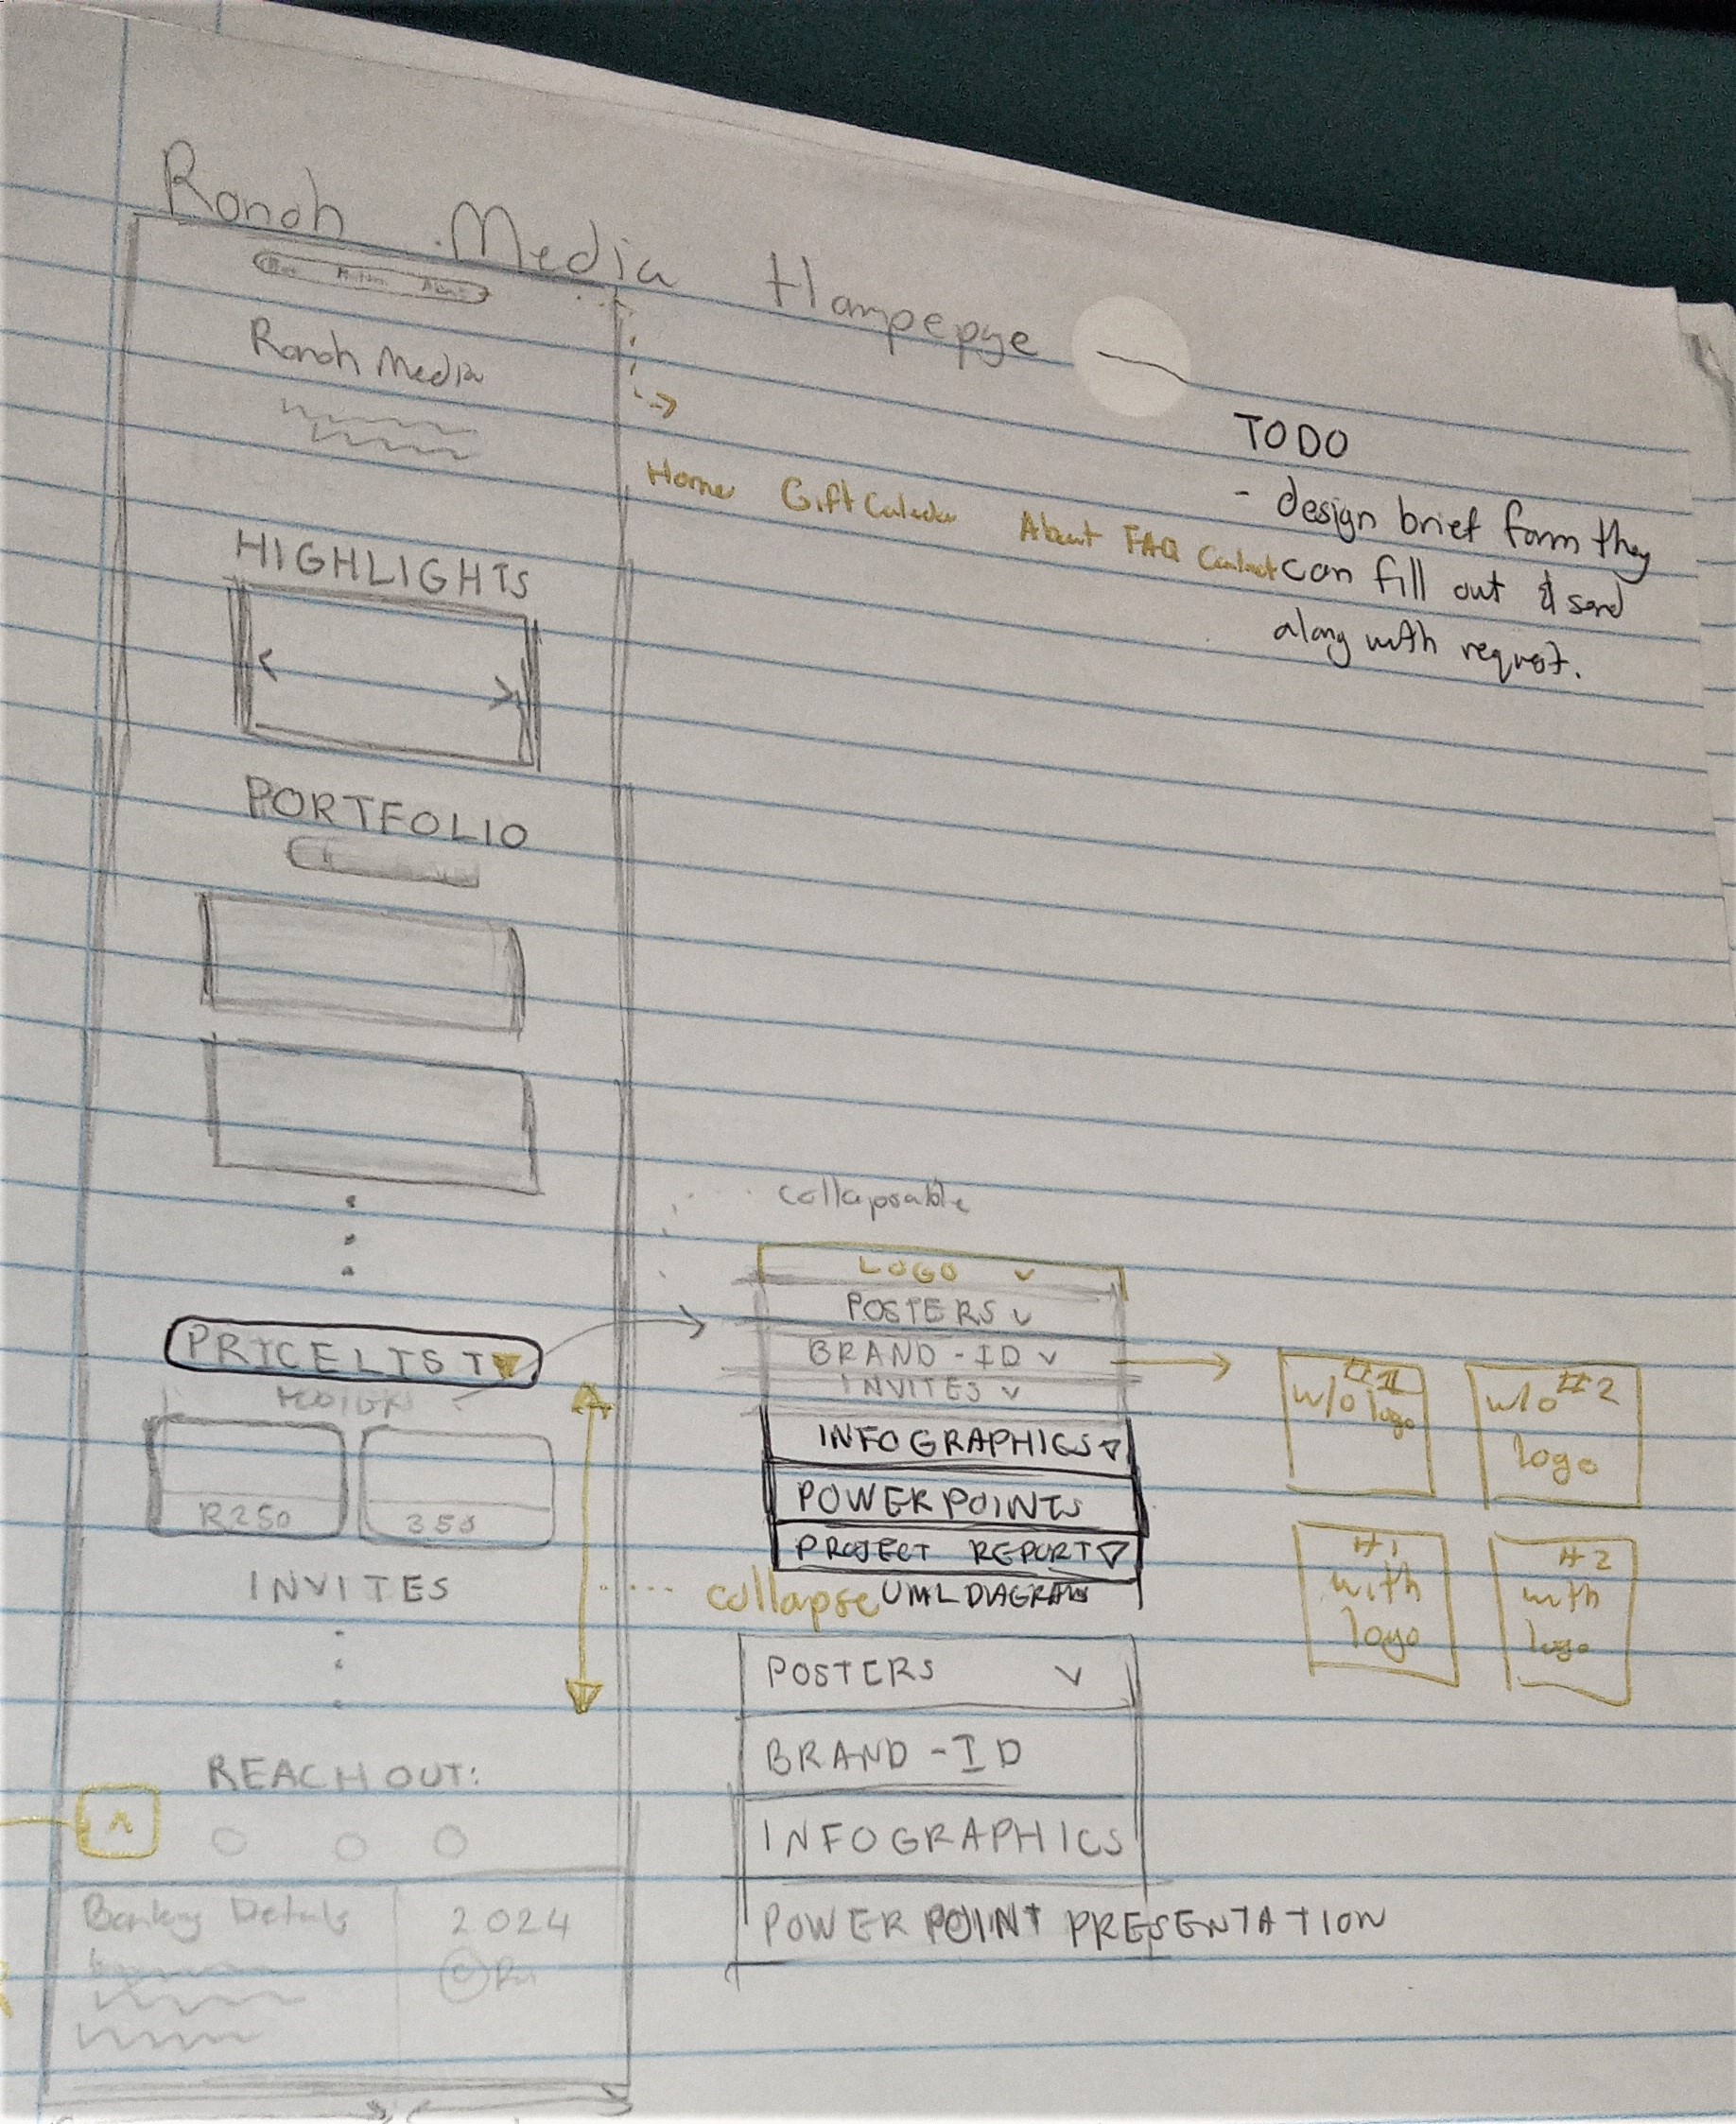 Ronoh Media Hompepge
Ronoh Media
TODO
- design brief form they
can fill out & send
along with request.
Home Gift About FAQ Contact
HIGHLIGHTS
PORTFOLIO
collapsable
LOGO
POSTERS
BRAND-ID
INVITES
INFOGRAPHICS
POWERPOINTS
PROJECT REPORT
UML DIAGRAMS
PRICELIST
R250
350
INVITES
collapse
w/o logo
w/o #2
logo
#1
with
logo
#2
with
logo
POSTERS
BRAND-ID
INFOGRAPHICS
POWER POINT PRESENTATION
REACH OUT:
Banking Details
2024
©